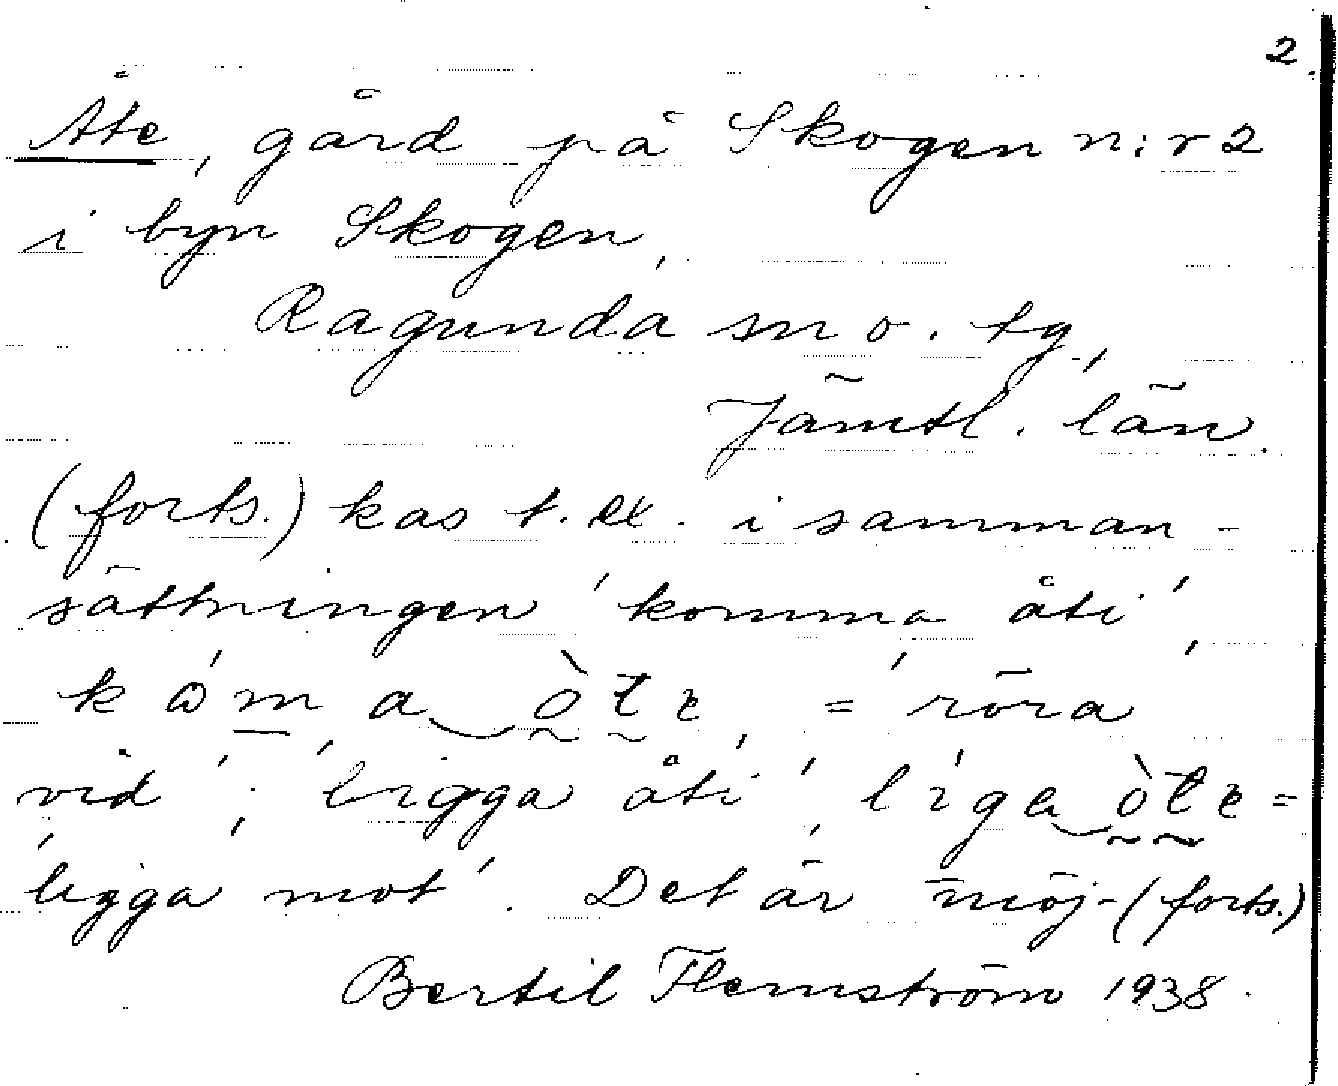 2.
Åte, gård på Skogen n:r 2
i byn Skogen,
Ragunda sn o. tg,
Jämtl. län.
(forts.) kas t. ex. i samman-
sättningen 'komma åti',
kòma òtε, = 'röra
vid'; 'ligga åti', líga òtε =
'ligga mot'. Det är möj- (forts.)
Bertil Flemström 1938.